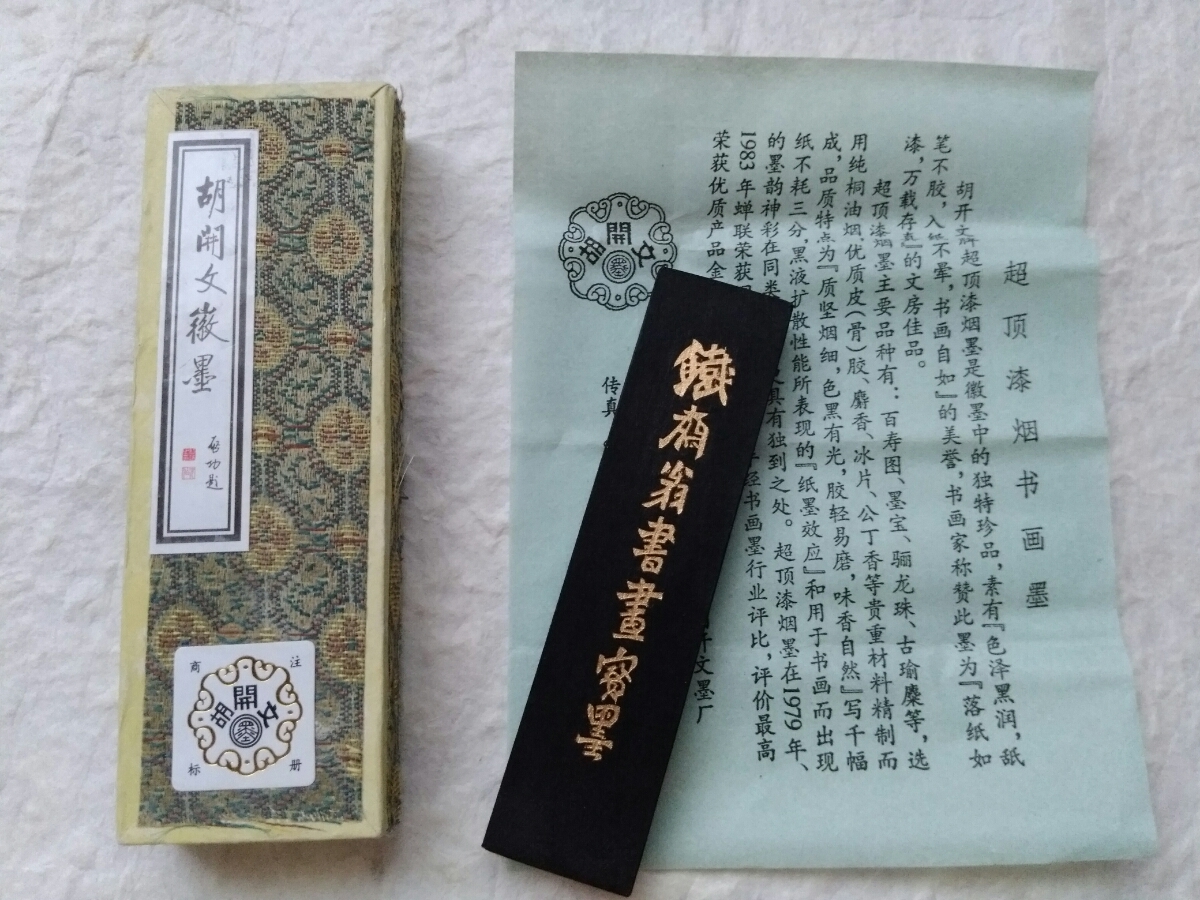 胡開文徽墨
启功题
注册商标
胡開文
墨
超顶漆烟书画墨
胡开文牌超顶漆烟墨是徽墨中的独特珍品,素有『色泽黑润,舐
笔不胶,入纸不晕,书画自如』的美誉,书画家称赞此墨为『落纸如
漆,万载存真』的文房佳品。
超顶漆烟墨主要品种有:百寿图、墨宝、骊龙珠、古瑜麋等,选
用纯桐油烟、优质皮(骨)胶、麝香、冰片、公丁香等贵重材料精制而
成,品质特点为『质坚烟细,色黑有光,胶轻易磨,味香自然』写千幅
纸不耗三分,黑液扩散性能所表现的『纸墨效应』和用于书画而出现
的墨韵神彩在同类具有独到之处。超顶漆烟墨在1979年、
1983年蝉联荣获书画墨行业评比,评价最高
荣获优质产品金
开文墨厂
传真
胡開文
墨
鐵斋翁書畫寳墨